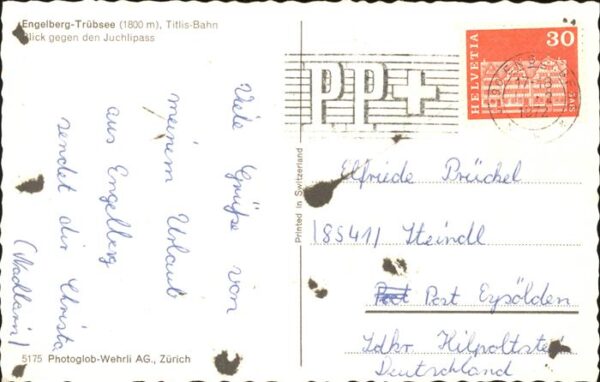 Engelberg-Trübsee (1800 m), Titlis-Bahn
Blick gegen den Juchlipass
Viele Grüße von
meinem Urlaub
aus Engelberg
sendet dir Christa
5175 Photoglob-Wehrli AG., Zürich
Printed in Switzerland
PP+
HELVETIA
30
Elfriede Brückel
(8541) Steindl
Post Eysölden
Ldkr Hilpoltstein
Deutschland